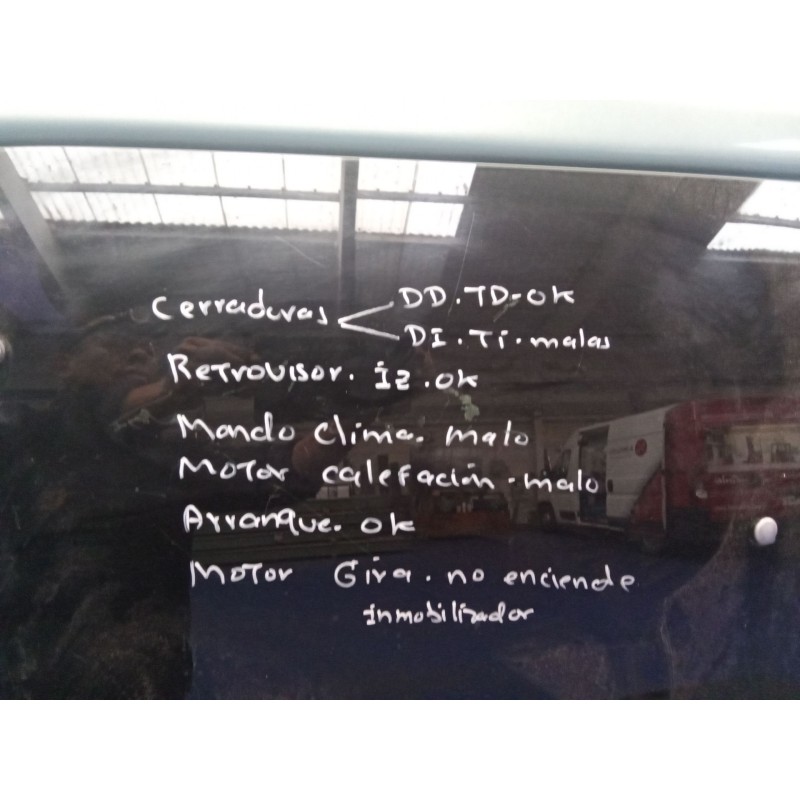 Cerraduras
DD.TD-OK
DI.Ti.malas
RETroVisor. iz.ok
Mando clima. malo
MOTOR calefación-malo
Arranque. ok
MOTOR Gira. no enciende
inmobilizador